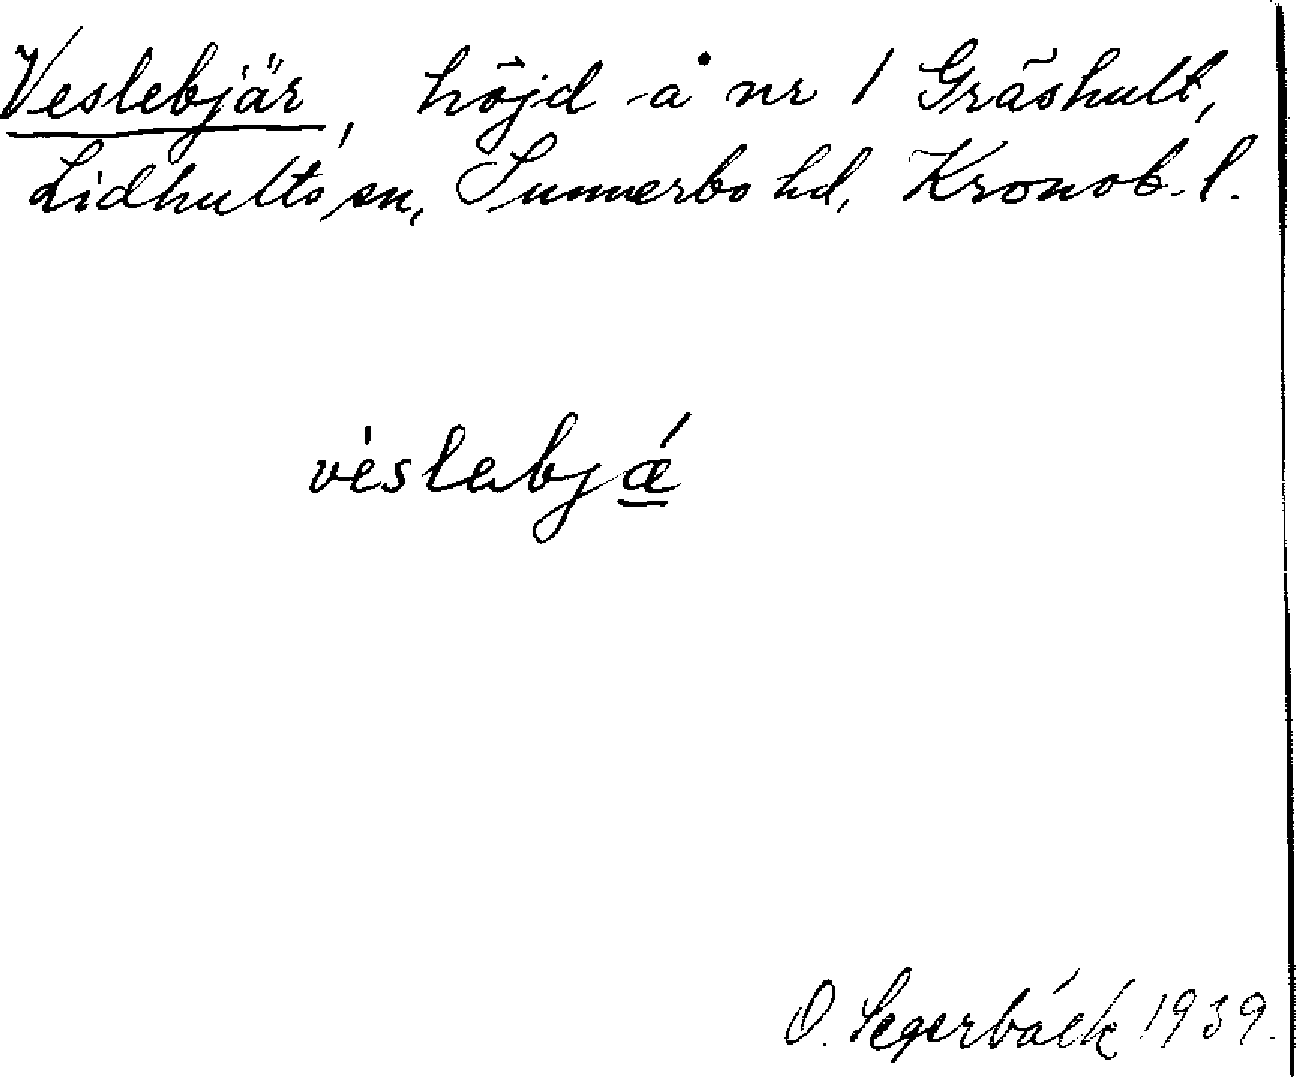 Veslebjär, höjd å nr 1 Gräshult,
Lidhults sn, Sunnerbo hd, Kronob. l.
vèslabjǽ
O. Segerbäck 1939.